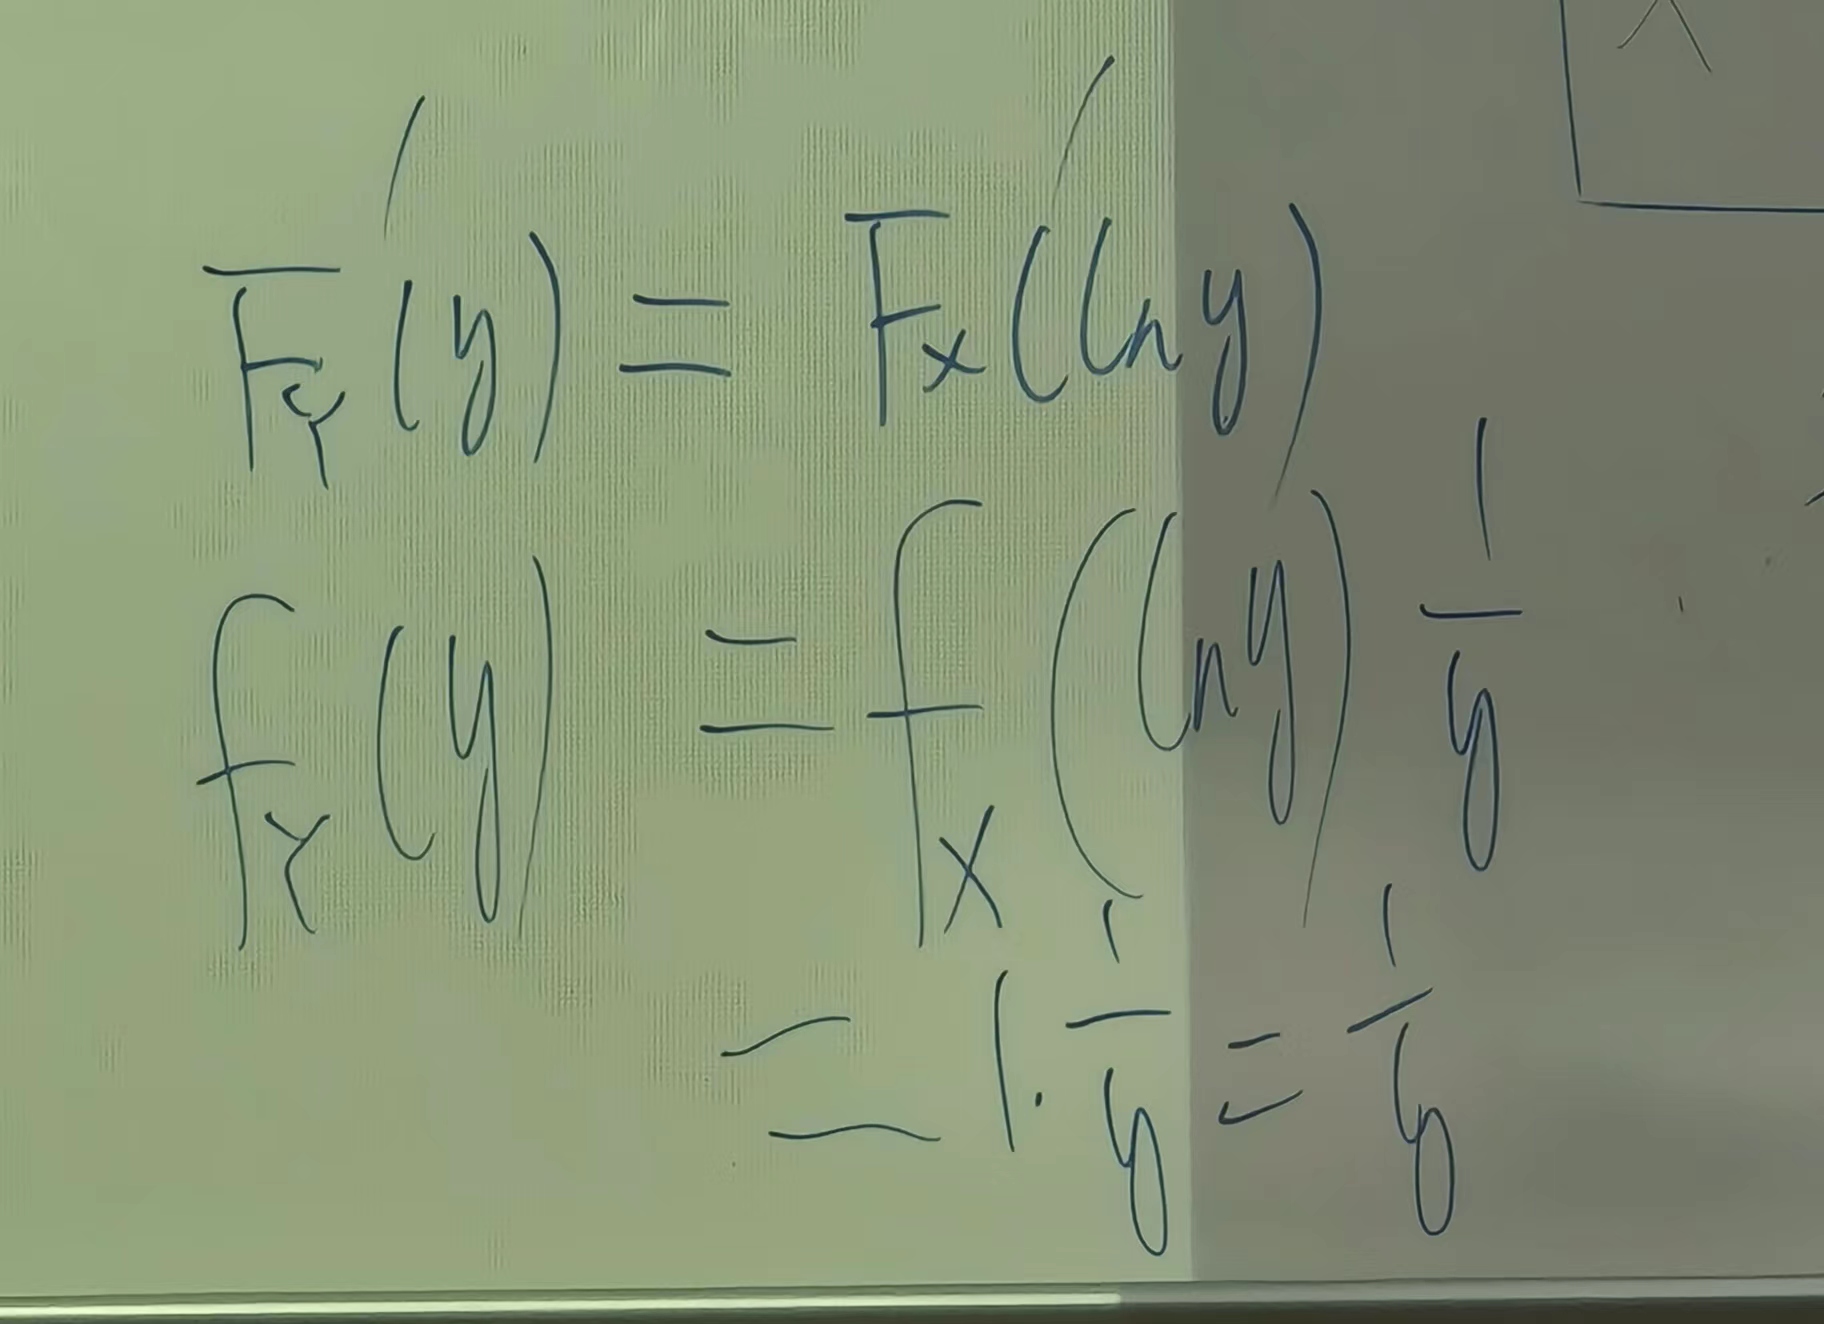 F'_Y(y) = F'_X(ln y)
f_Y(y) = f_X(ln y) 1/y
= 1 · 1/y = 1/y